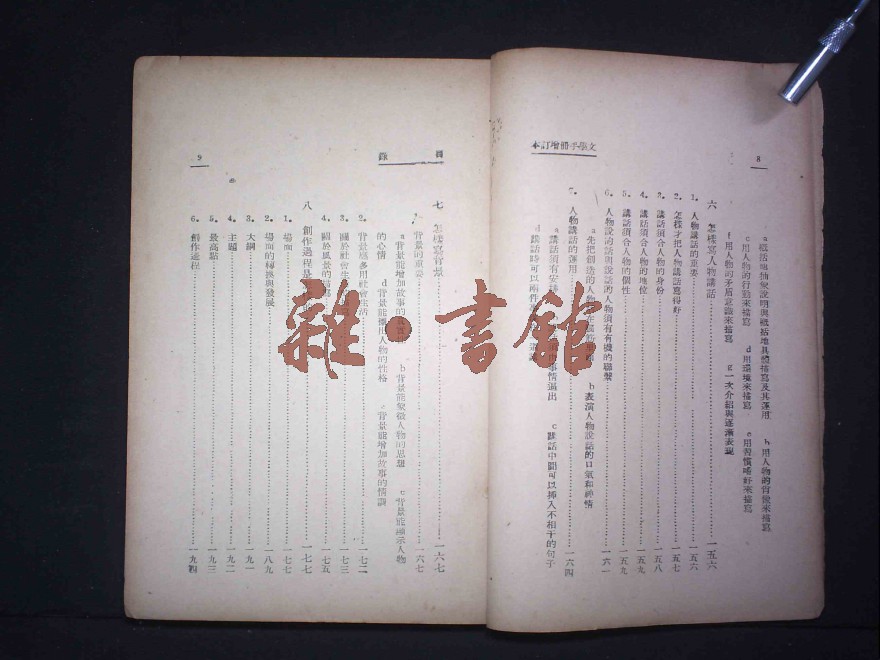 文學手冊增訂本
8
a 概括地抽象說明與概括地具體描寫及其運用 b 用人物的肖像來描寫
c 用人物的行動來描寫 d 用環境來描寫 e 用習慣嗜好來描寫
f 用人物的矛盾意識來描寫 g 一次介紹與逐漸表現
六 怎樣寫人物講話 一五六
1. 人物講話的重要 一五六
2. 怎樣才把人物講話寫得好 一五七
3. 講話須合人物的身份 一五八
4. 講話須合人物的地位 一五九
5. 講話須合人物的個性 一五九
6. 人物說的話與說話的人物須有有機的聯繫 一六一
a 先把創造的人物 b 表演人物說話的口氣和神情
7. 人物講話的運用 一六四
a 講話須有 事情逼出 c 談話中間可以挿入不相干的句子
d 談話時可以兩件
目錄
9
七 怎樣寫背景 一六七
1. 背景的重要 一六七
a 背景能增加故事的 b 背景能象徵人物的思想 c 背景能暗示人物
的心情 d 背景能 人物的性格 e 背景能增加故事的情調
2. 背景應多用社會生活 一七二
3. 關於社會生 一七三
4. 關於風景的描寫 一七五
八 創作過程是 一七七
1. 場面 一七七
2. 場面的轉換與發展 一八九
3. 大綱 一九一
4. 主題 一九二
5. 最高點 一九三
6. 創作過程 一九四
雜·書館